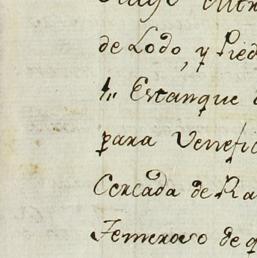 de Lodo, y Pied
1,, Estanque
para Venefic
Cercada de Ra
Temeroso de q